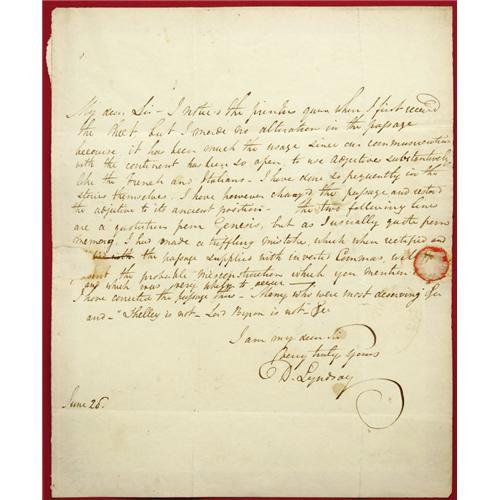 My dear Sir – I noticed the printers quere when I first received
the sheet but I made no alteration in the passage
because it has been much the usage since our communication
with the continent has been so open, to use adjectives substantively
like the French and Italians. I have done so frequently in the
stories themselves. I have however changed the passage and restored
the adjective to its ancient position – The two following lines
are a quotation from Genesis, but as I usually quote from
memory I had made a trifling mistake, which when rectified and
the passage supplied with inverted Commas, will
the probable misconstruction which you mention
and which was very likely to occur –
I have corrected the passage thus – Many who were most deserving &c
and – "Shelley is not – Lord Byron is not" &c
I am my dear Sir
Very truly yours
D. Lyndsay
June 26.